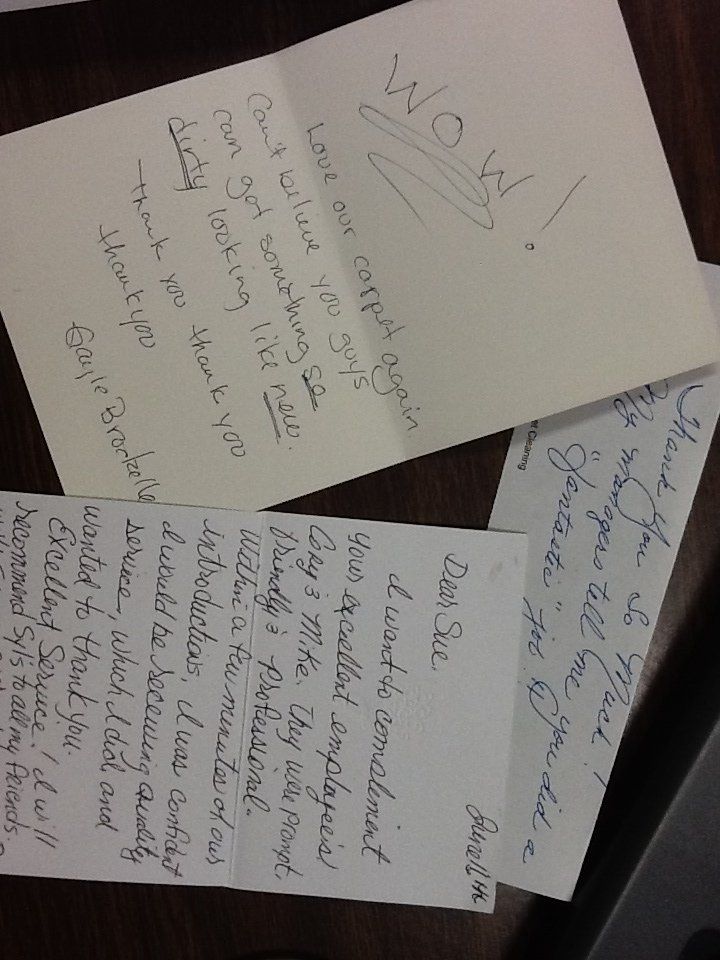 WOW!
Love our carpet again
Can't believe you guys
can get something so
dirty looking like new.
thank you thank you
thank you
Gayle
et Cleaning
Thank You So Much!
My managers tell me you did a
"fantastic" job.
June 11th
Dear Sue,
I want to complement
your excellent employees!
Cory & Mike. They were prompt,
friendly & professional.
Within a few minutes of our
introductions, I was confident
I would be receiving quality
service, which I did and
wanted to thank you.
Excellent Service! I will
recommend Syl's to all my friends.